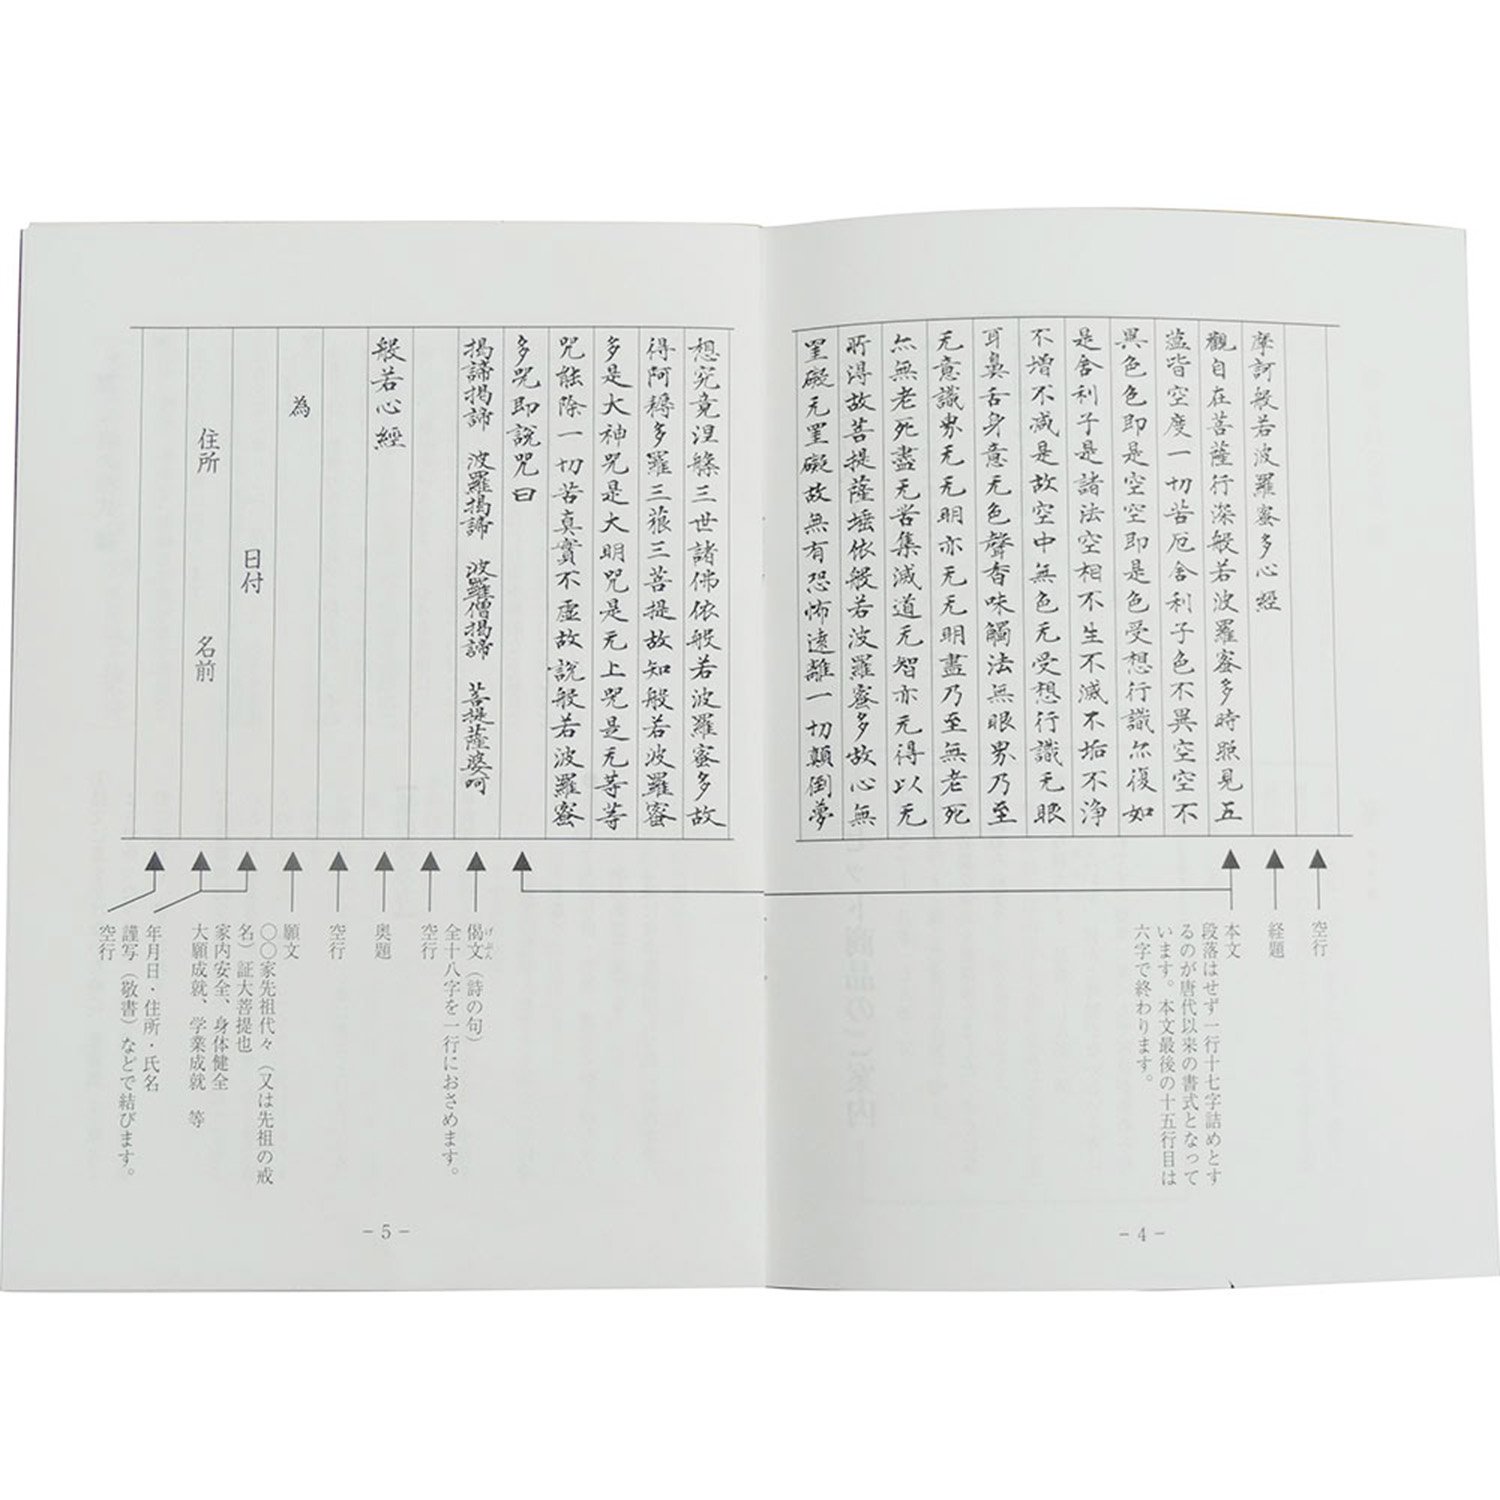 摩訶般若波羅蜜多心經
觀自在菩薩行深般若波羅蜜多時照見五
蘊皆空度一切苦厄舍利子色不異空空不
異色色即是空空即是色受想行識亦復如
是舍利子是諸法空相不生不滅不垢不浄
不增不減是故空中無色无受想行識无眼
耳鼻舌身意无色聲香味觸法無眼界乃至
无意識界无无明亦无无明盡乃至無老死
亦無老死盡无苦集滅道无智亦无得以无
所得故菩提薩埵依般若波羅蜜多故心無
罣礙无罣礙故無有恐怖遠離一切顛倒夢
空行
経題
本文
段落はせず一行十七字詰めとす
るのが唐代以来の書式となって
います。本文最後の十五行目は
六字で終わります。
- 4 -
想究竟涅槃三世諸佛依般若波羅蜜多故
得阿耨多羅三藐三菩提故知般若波羅蜜
多是大神咒是大明咒是无上咒是无等等
咒能除一切苦真實不虛故說般若波羅蜜
多咒即說咒曰
揭諦揭諦 波羅揭諦 波羅僧揭諦 菩提薩婆呵
般若心經
為
日付
住所 名前
偈文（詩の句）
げもん
全十八字を一行におさめます。
空行
奥題
空行
願文
〇〇家先祖代々（又は先祖の戒
名）証大菩提也
家内安全、身体健全
大願成就、学業成就 等
年月日・住所・氏名
謹写（敬書）などで結びます。
空行
- 5 -